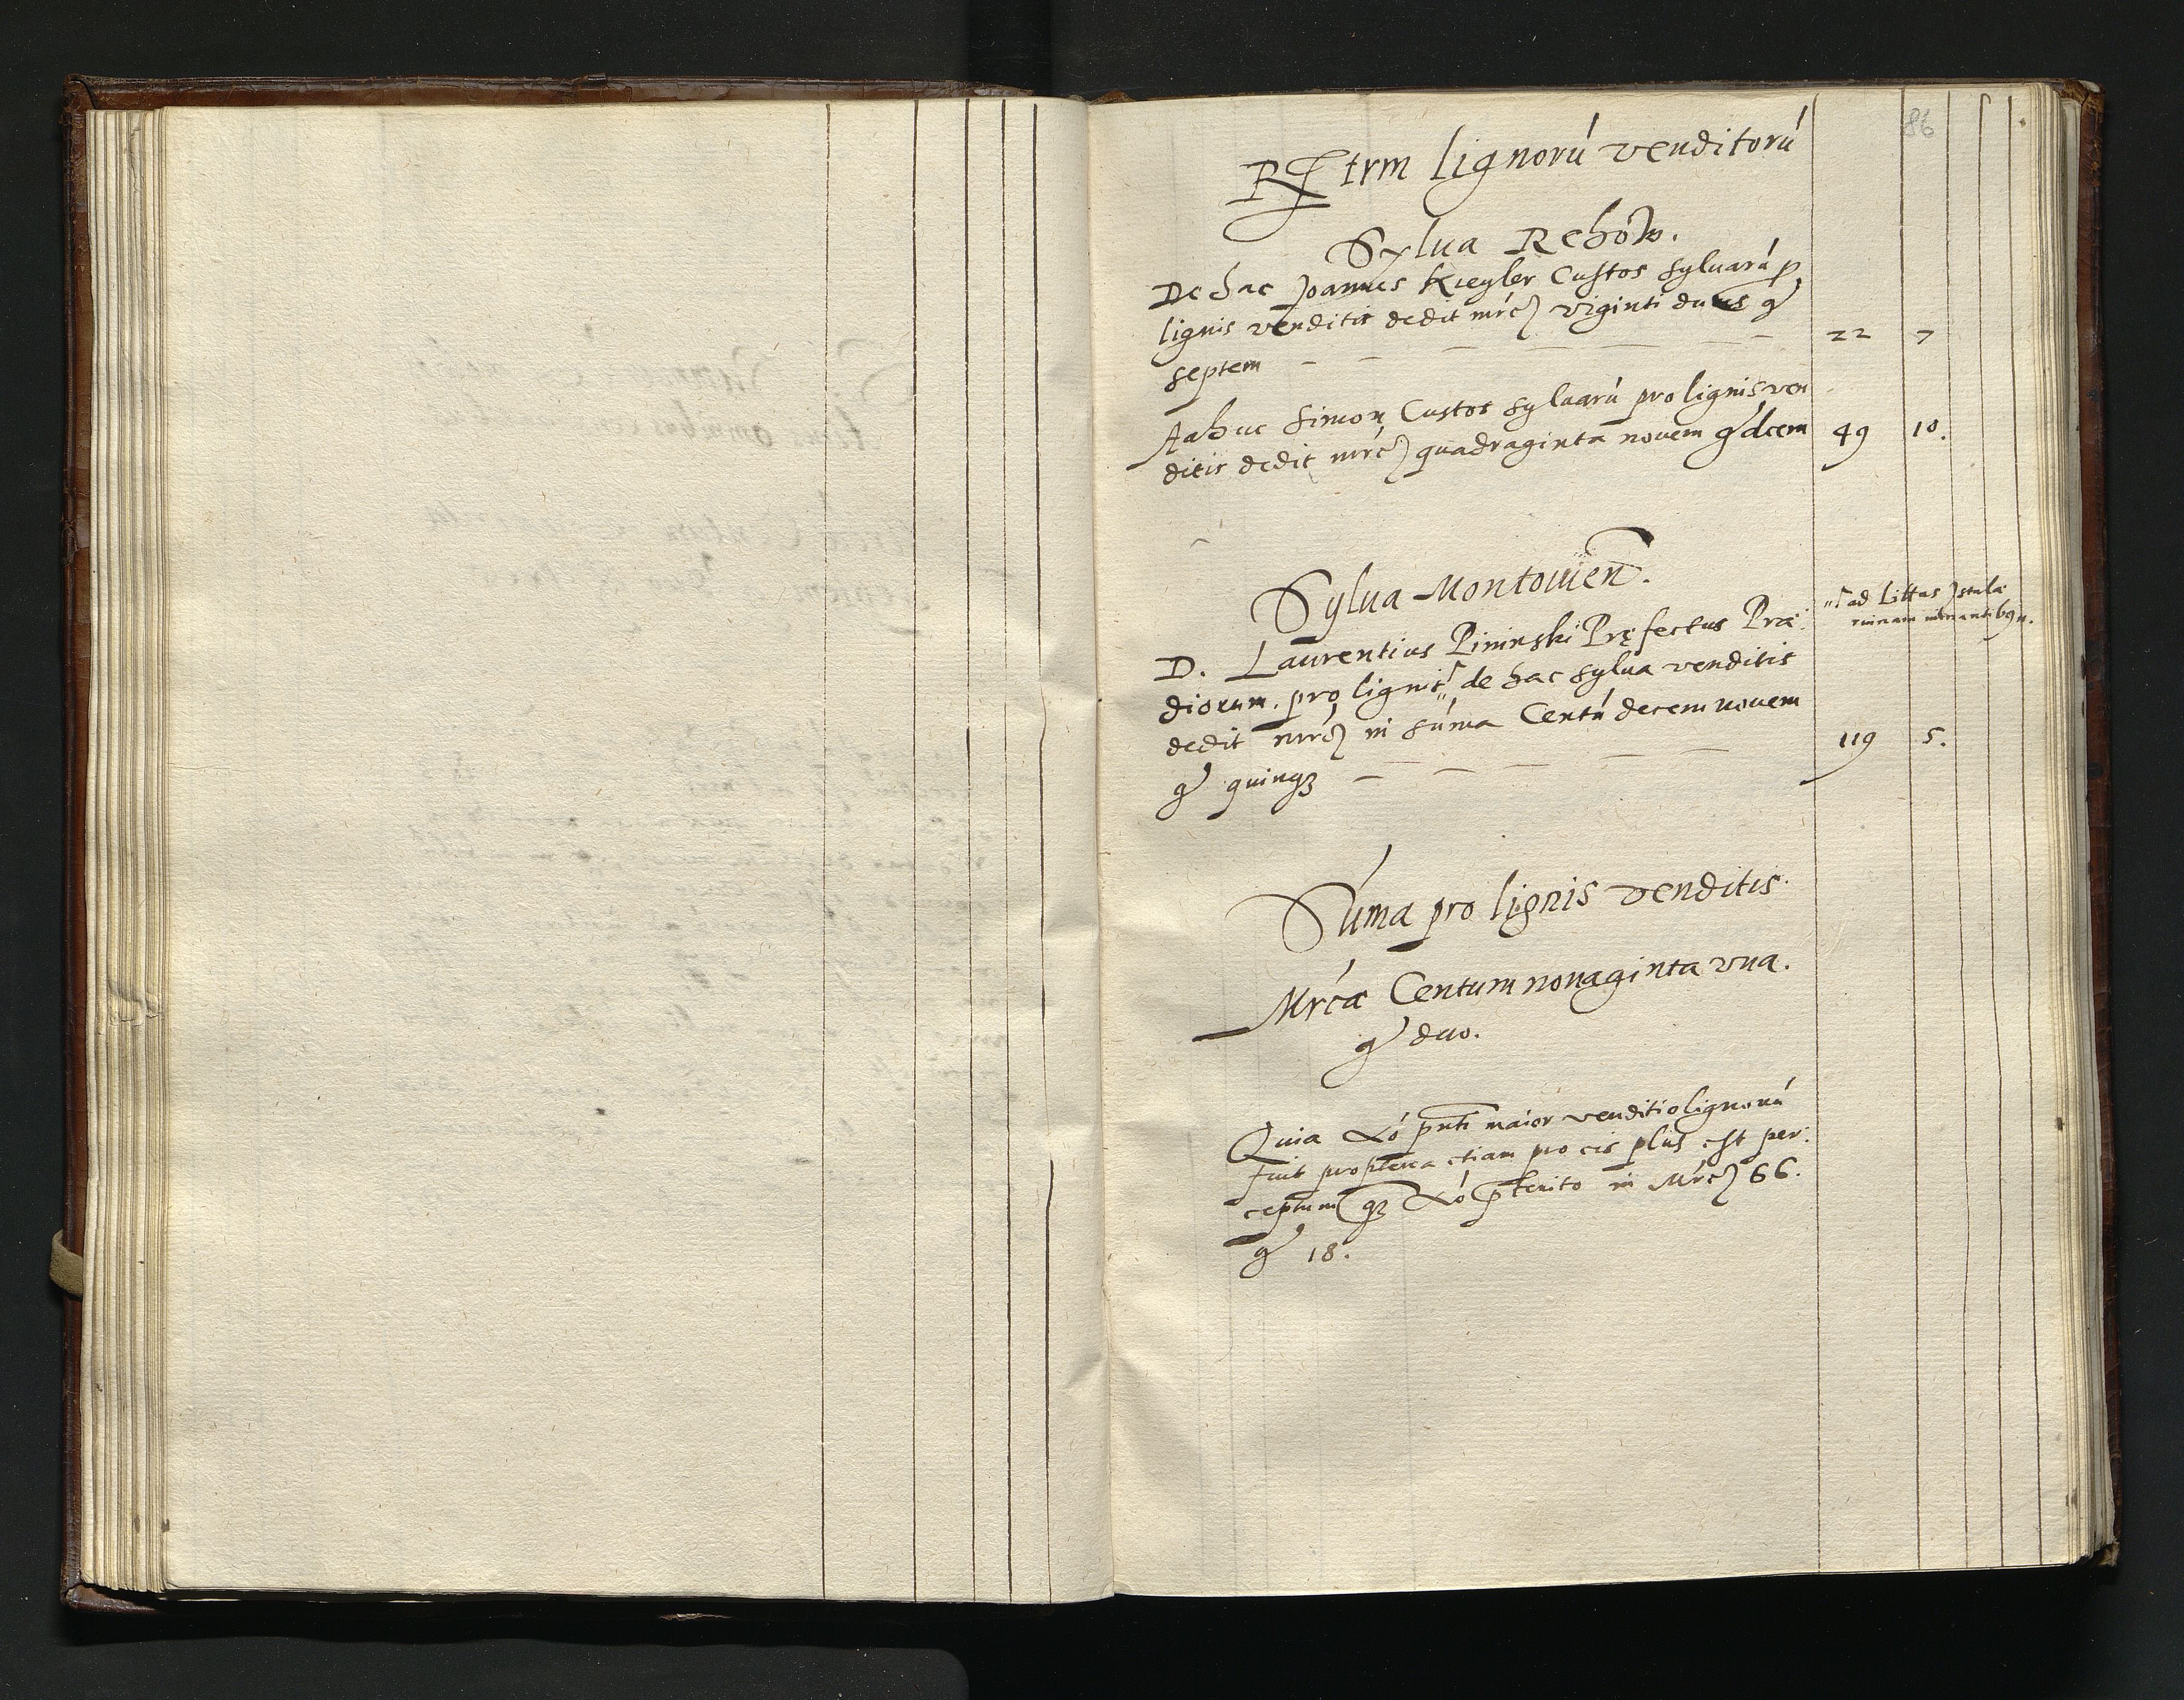 86
Rgtrm lignorú venditorú
Sylua Rehow.
De hac Joannes Kiegler Custos syluarú p
lignis venditis dedit mrc) viginti duas g
septem — — — — — — — 22 7
Jahuc Simon Custos syluarú pro lignis ven
ditis dedit mrc) quadraginta nouem g decem 49 10.
Sylua Montouień.
D. Laurentius Pininski Pręfectus Præ:
diorum. pro lignis de hac sylua venditis
"⌈ ad Littus
ruinam
dedit mrc) in súma Centú decem nouem
g quinqȝ — — — — — 119 5.
Súma pro lignis venditis.
Mrca Centum nonaginta vna.
g duo.
Quia Aó pnti maior venditio lignorú
fuit propterea etiam pro eis plus est per:
ceptum qȝ Aó pterito in Mrc) 66.
g 18.